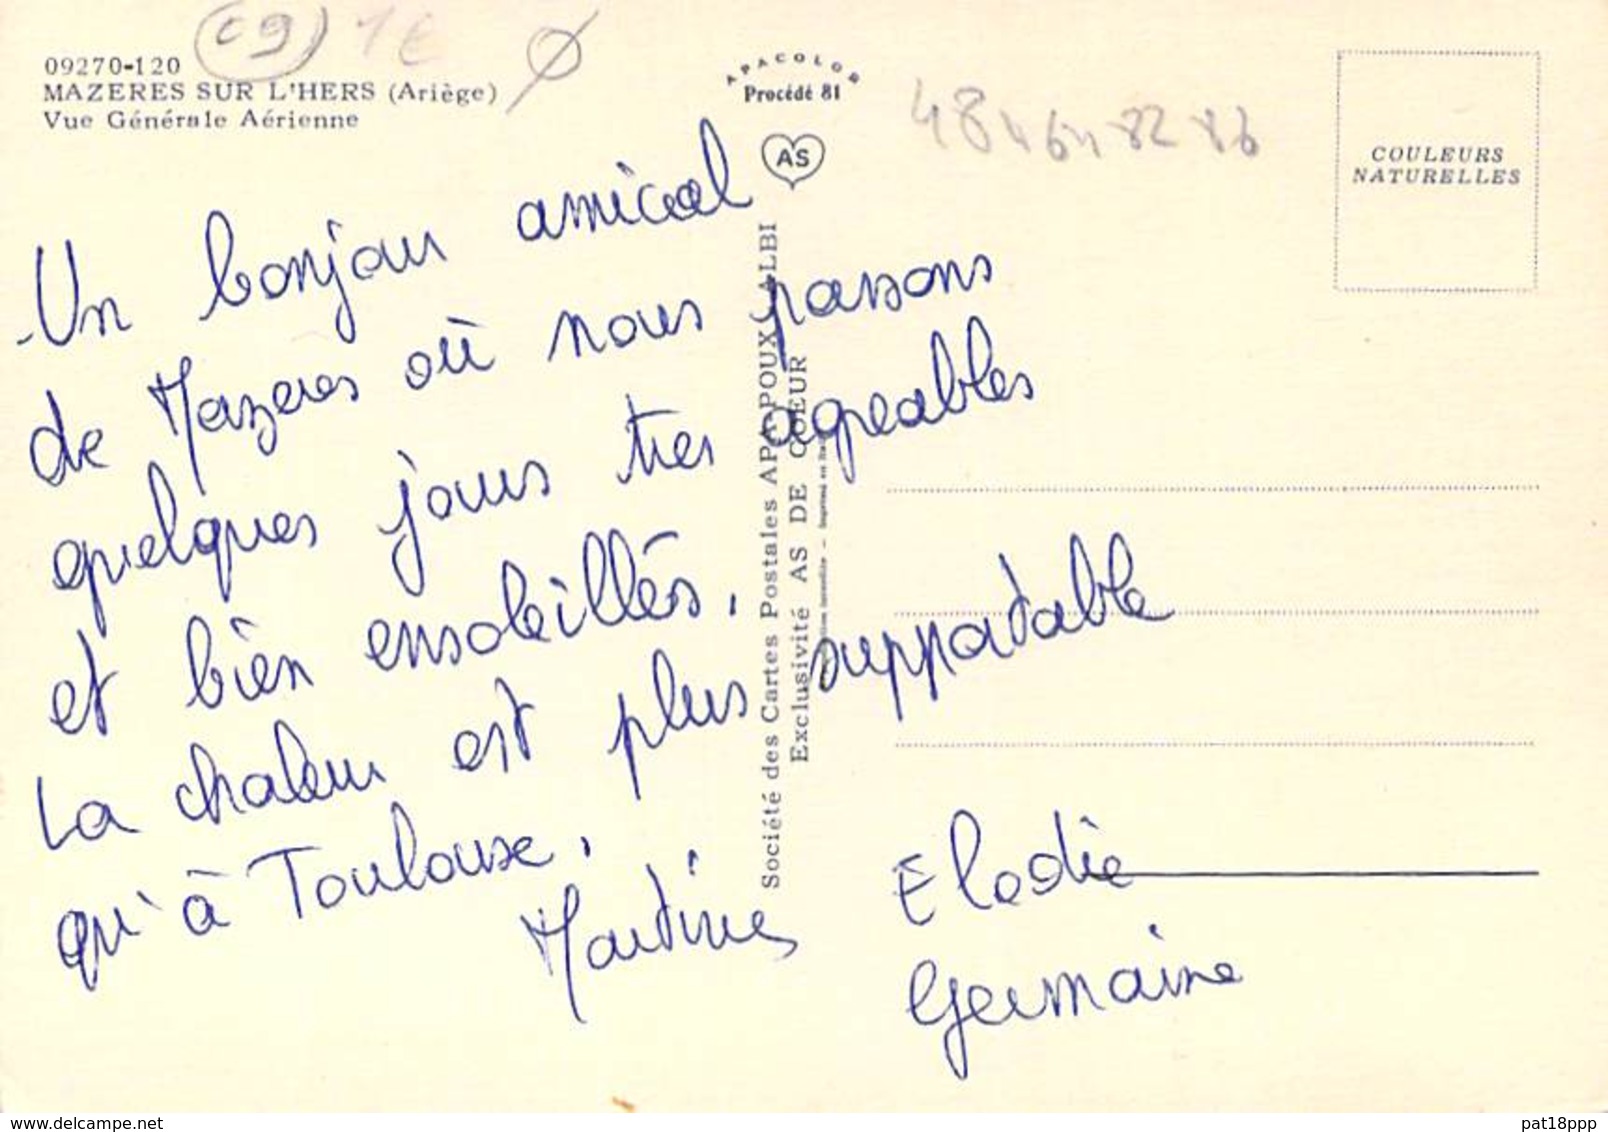 09270-120
MAZERES SUR L'HERS (Ariège)
Vue Générale Aérienne
09 1€
APACOLOR
Procédé 81
AS
COULEURS
NATURELLES
Un bonjour amical
de Mazeres où nous passons
quelques jours tres agreables
et bien ensoleillés.
La chaleur est plus supportable
qu'à Toulouse.
Martine
Elodie
Germaine
Société des Cartes Postales APA-POUX ALBI
Exclusivité AS DE COEUR
interdite - Imprimé en
www.delcampe.net
pat18ppp